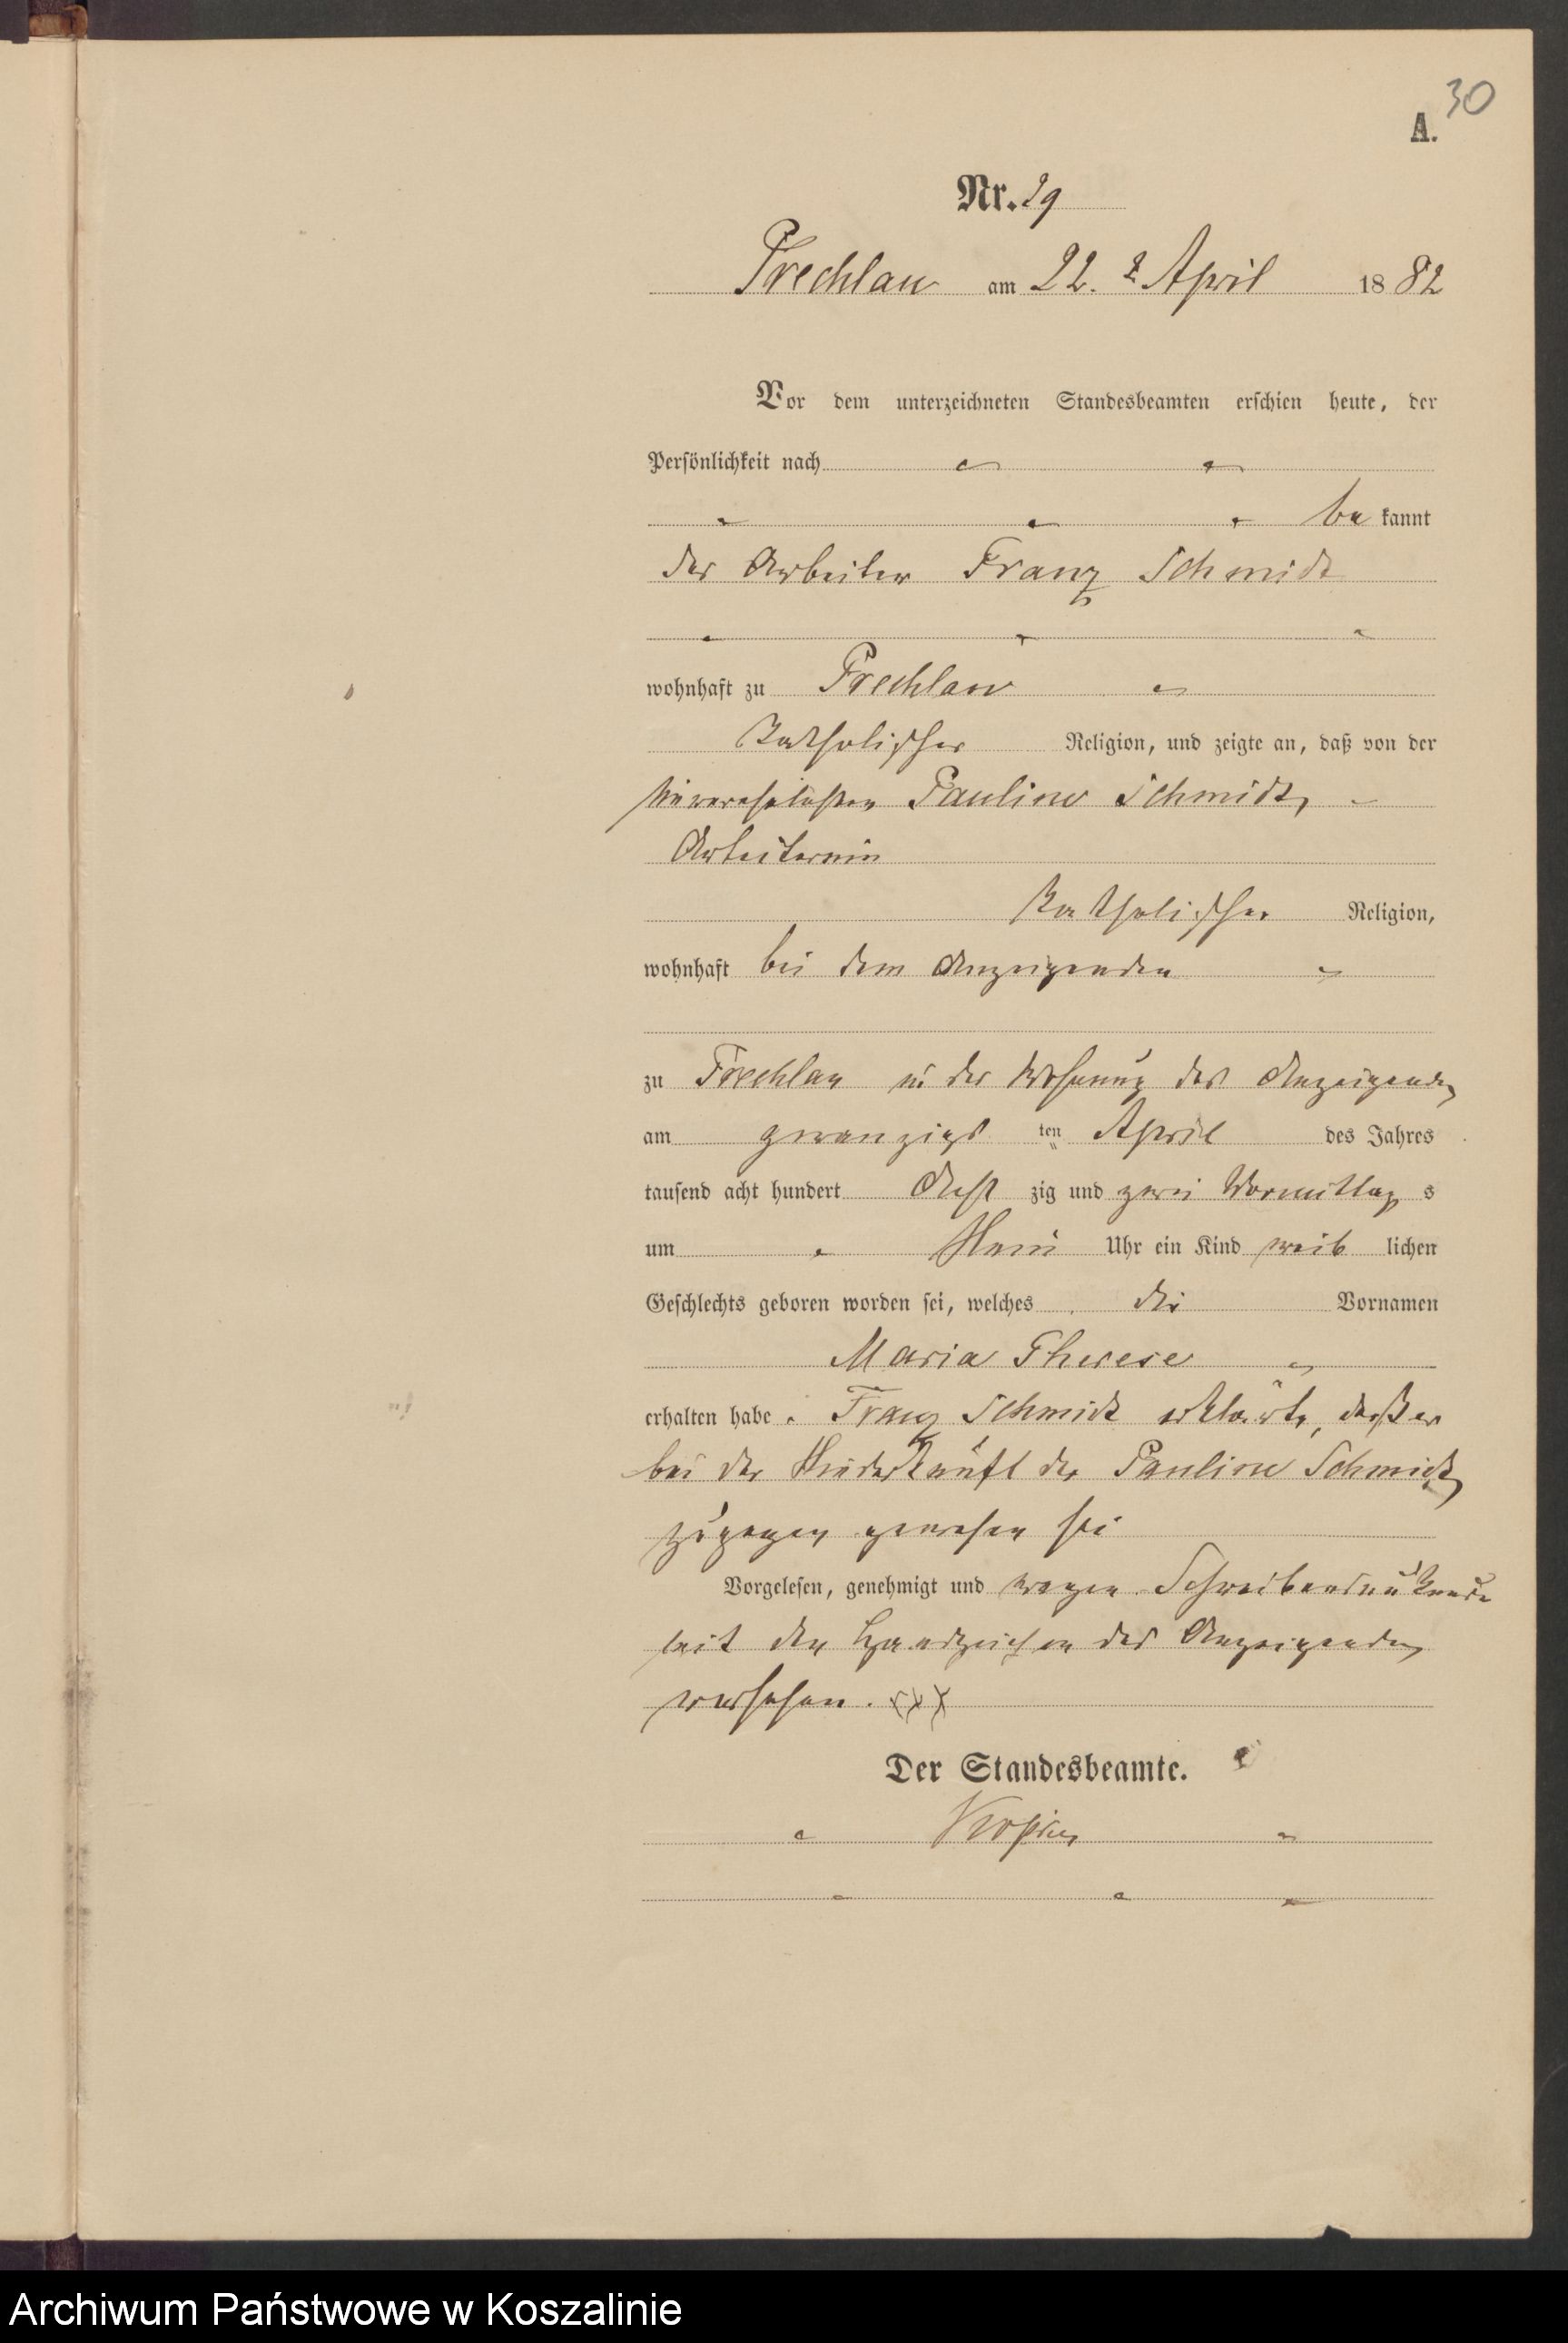 30
A.
Nr. 29
Prechlau am 22. April 1882
Vor dem unterzeichneten Standesbeamten erschien heute, der
Persönlichkeit nach
be kannt
der Arbeiter Franz Schmidt
wohnhaft zu Prechlau
Katholischer Religion, und zeigte an, daß von der
unverehelichten Pauline Schmidt,
Arbeiterin
Katholischer Religion,
wohnhaft bei dem Anzeigenden
zu Prechlau in der Wohnung des Anzeigenden
am zwanzigs ten April des Jahres
tausend acht hundert Acht zig und zwei Vormittag s
um Uhr ein Kind weib lichen
Geschlechts geboren worden sei, welches die Vornamen
Maria Therese
erhalten habe. Franz Schmidt erklärte, daß er
bei der Niederkunft der Pauline Schmidt
zugegen gewesen sei
Vorgelesen, genehmigt und wegen Schreibensunkunde
mit den Handzeichen des Anzeigenden
versehen. XXX
Der Standesbeamte.
Archiwum Państwowe w Koszalinie